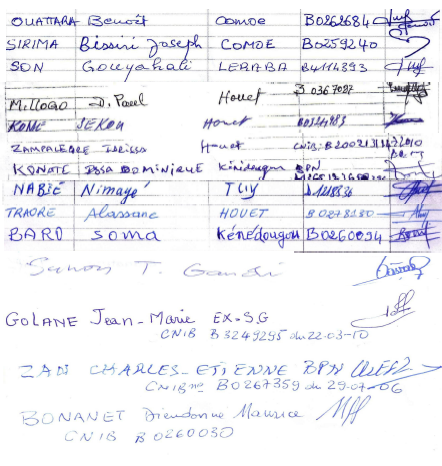 OUATTARA Benoît COMOE B0262684
SIRIMA Bissiri Joseph COMOE B0259240
SON Gouyahali LERABA B4114393
MILLOGO D. Paul Houet B 0367027
KONE SEKOU Houet
ZAMPALEGRE IDRISSA Houet CNIB:
KONATE ISSA DOMINIQUE Kénédougou BPN
NABIÉ Nimayé TUY
TRAORE Alassane HOUET B 0278180
BARO SOMA Kénédougou B0260094
Sanon T. Gandi
GOLANE Jean-Marie EX-SG
CNIB B3249295 du 22-03-10
ZAN CHARLES-ETIENNE BPN
CNIB no B0267359 du 29-07-06
BONANET Dieudonné Maurice
CNIB B0260030